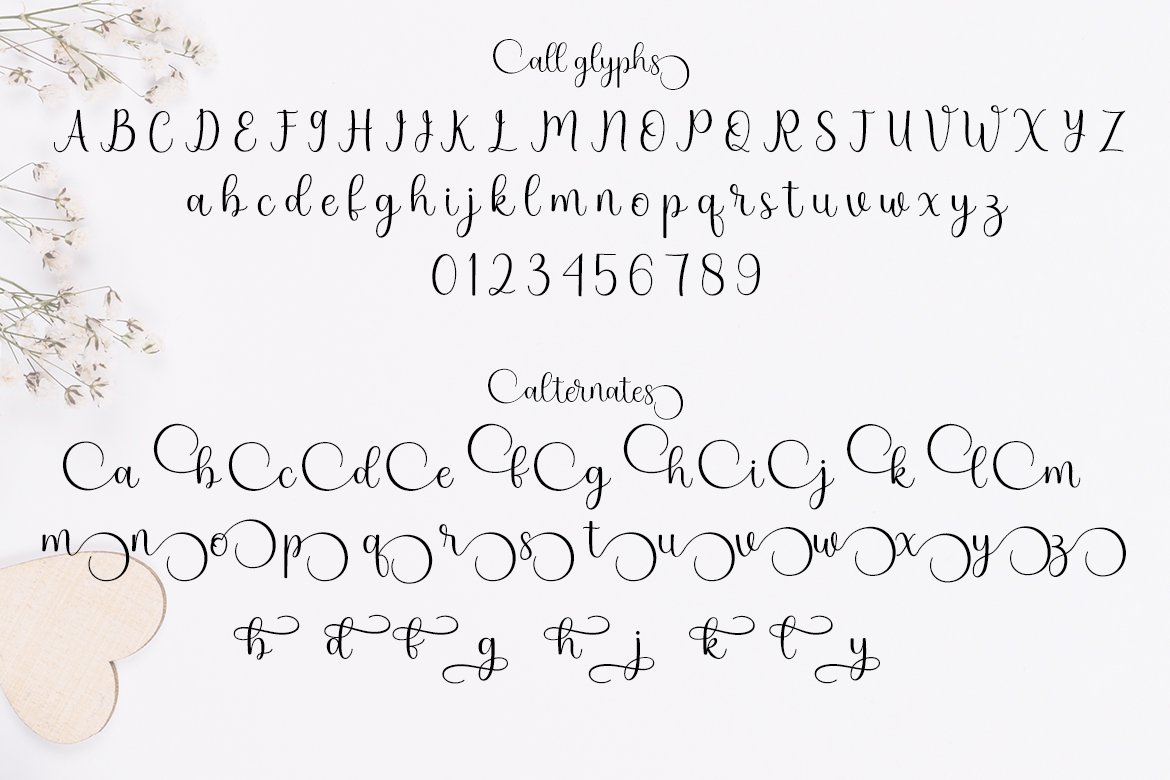 all glyphs
A B C D E F G H I J K L M N O P Q R S T U V W X Y Z
a b c d e f g h i j k l m n o p q r s t u v w x y z
0 1 2 3 4 5 6 7 8 9
alternates
a b c d e f g h i j k l m
m n o p q r s t u v w x y z
b d f g h j k t y